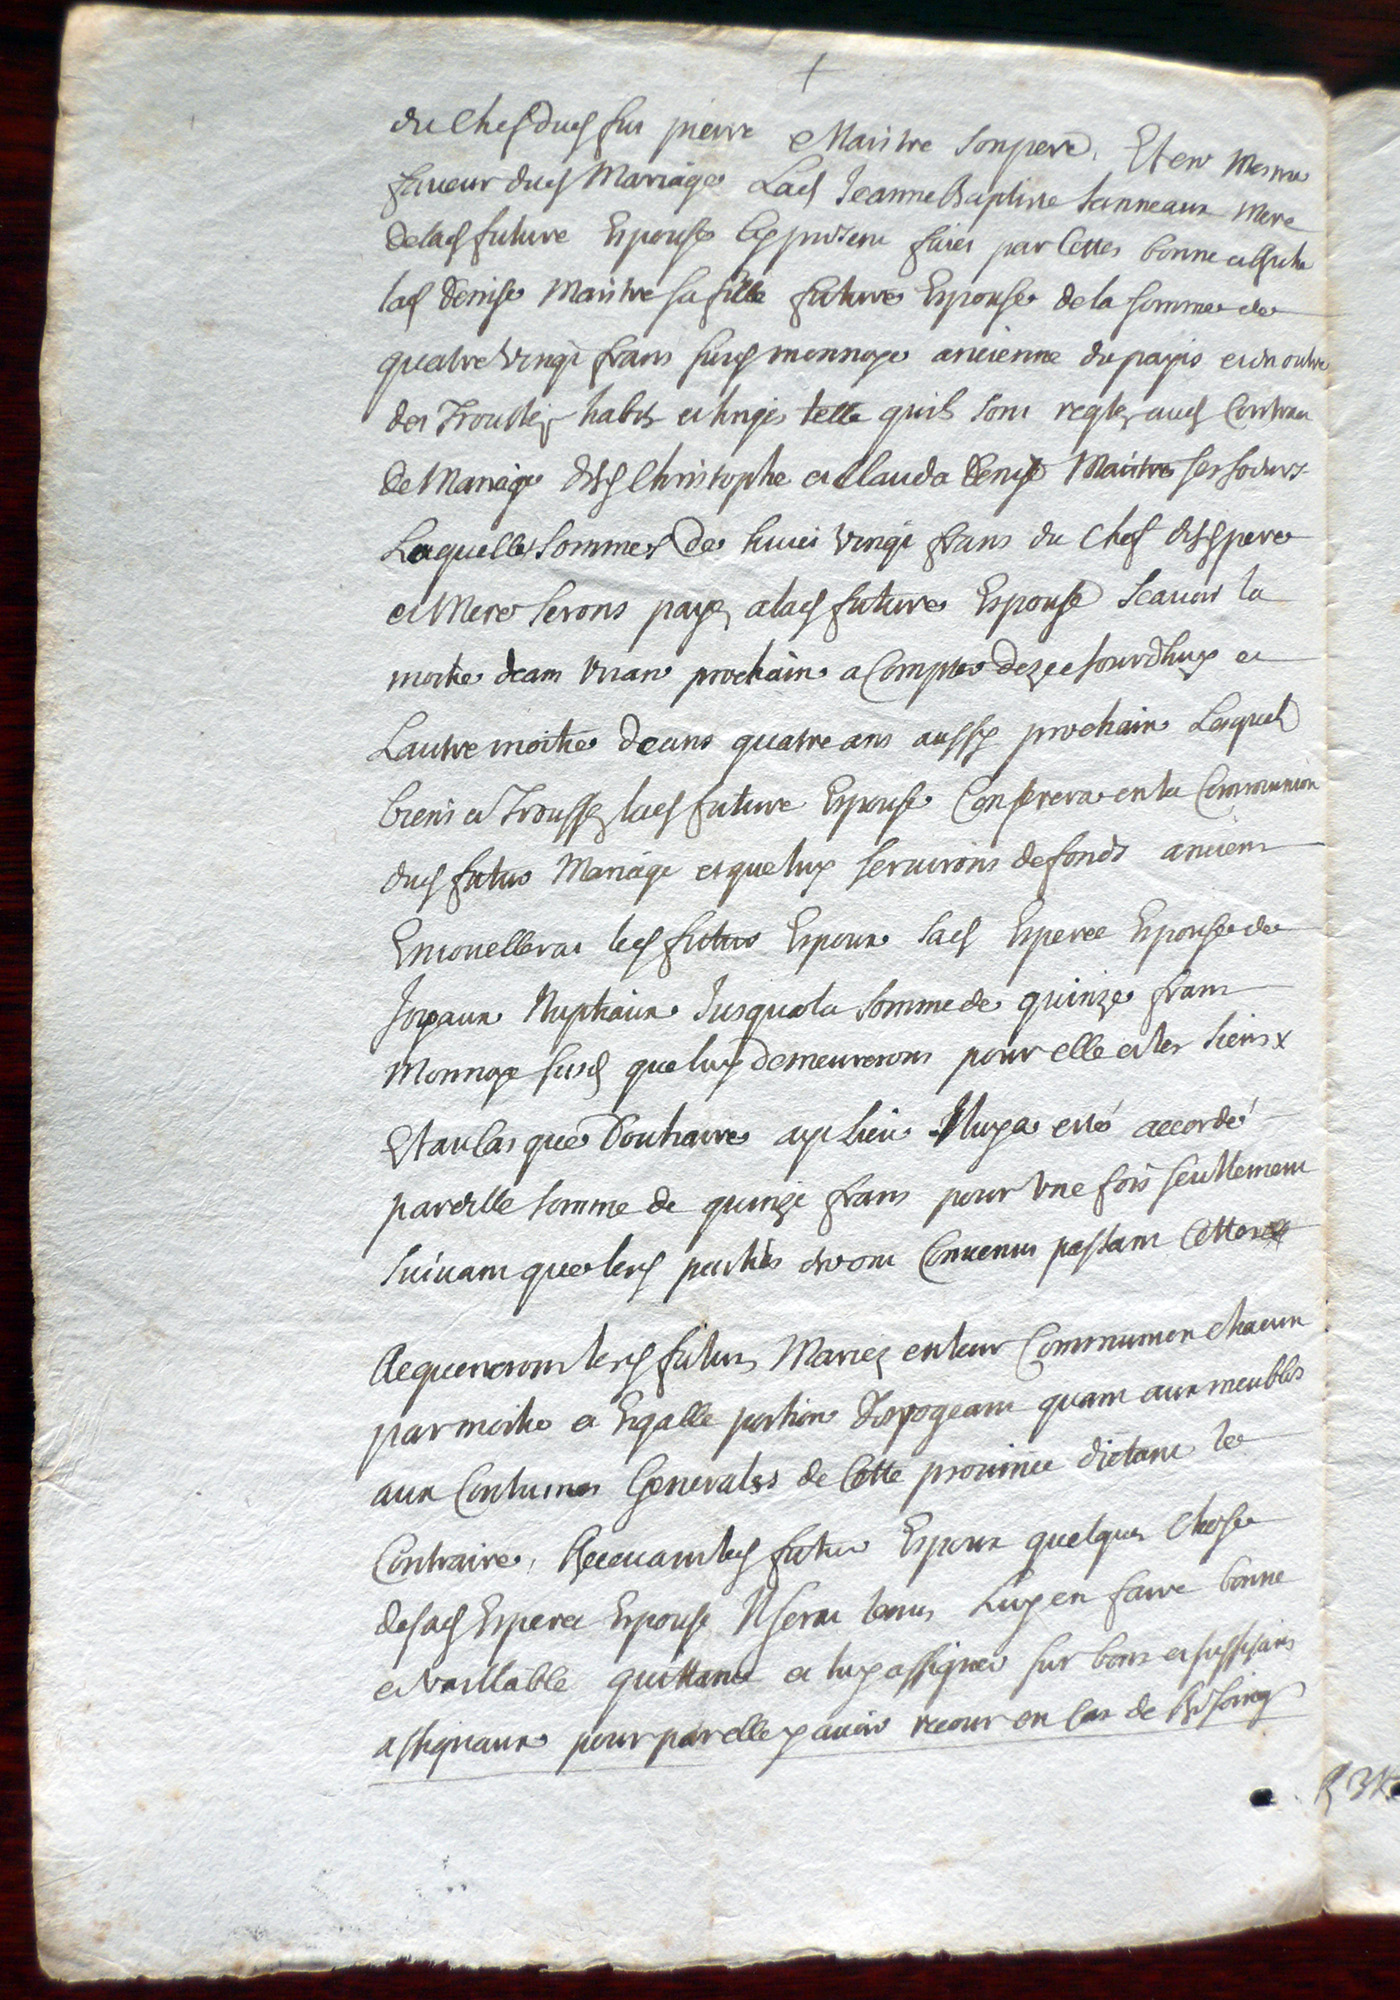 +
du chef dud fut pierre Maistre son pere. Et en mesme
faveur dud Mariage Lad Jeanne Baptiste Sanneaux Mere
de lad future Espouse Cy presente faict par cettes bonne et
lad denise Maistre sa fille future Espouse de la somme de
quatre vingt frans susd monnoye ancienne du payis et en outre
des Troussez habis et linges telle quils sont reglez aud Contrau
de Mariage desd Christophe et Clauda denise Maistre ses soeurs
Laquelle somme de huict vingt frans du chef desd pere
et Mere serons payez a lad future Espouse Scavoir la
moitie deans un an prochain a Compter dez ce jourdhuy et
Lautre moitie deans quatre ans aussy prochain Lesquel
biens et Troussez lad future Espouse Conferera en la Communion
dud futur Mariage et que luy serviront de fonds ancien
Enjouellera led futur Espoux sad Esperee Espouse de
Joyaux Nuptiaux Jusqua la somme de quinze frans
Monnoye susd que luy demeureront pour elle et les siens x
Et au Cas que Douhaire aye lieu Il luy a esté accordé
pareille somme de quinze frans pour une fois seullement
suivant que lesd parties en ont Convenus passant Cette
Acquereront lesd futurs Mariez en leur Communion chacun
par moitie et Egalle portion desrogeant quant aux meubles
aux Coutumes Generales de Cette province dictant le
Contraire, Recevant led futur Espoux quelque chose
de sad Esperee Espouse Il sera tenus Luy en faire bonne
et vaillable quittance et luy assigner sur bons et suffisans
assignaux pour par elle y avoir recour en Cas de besoing